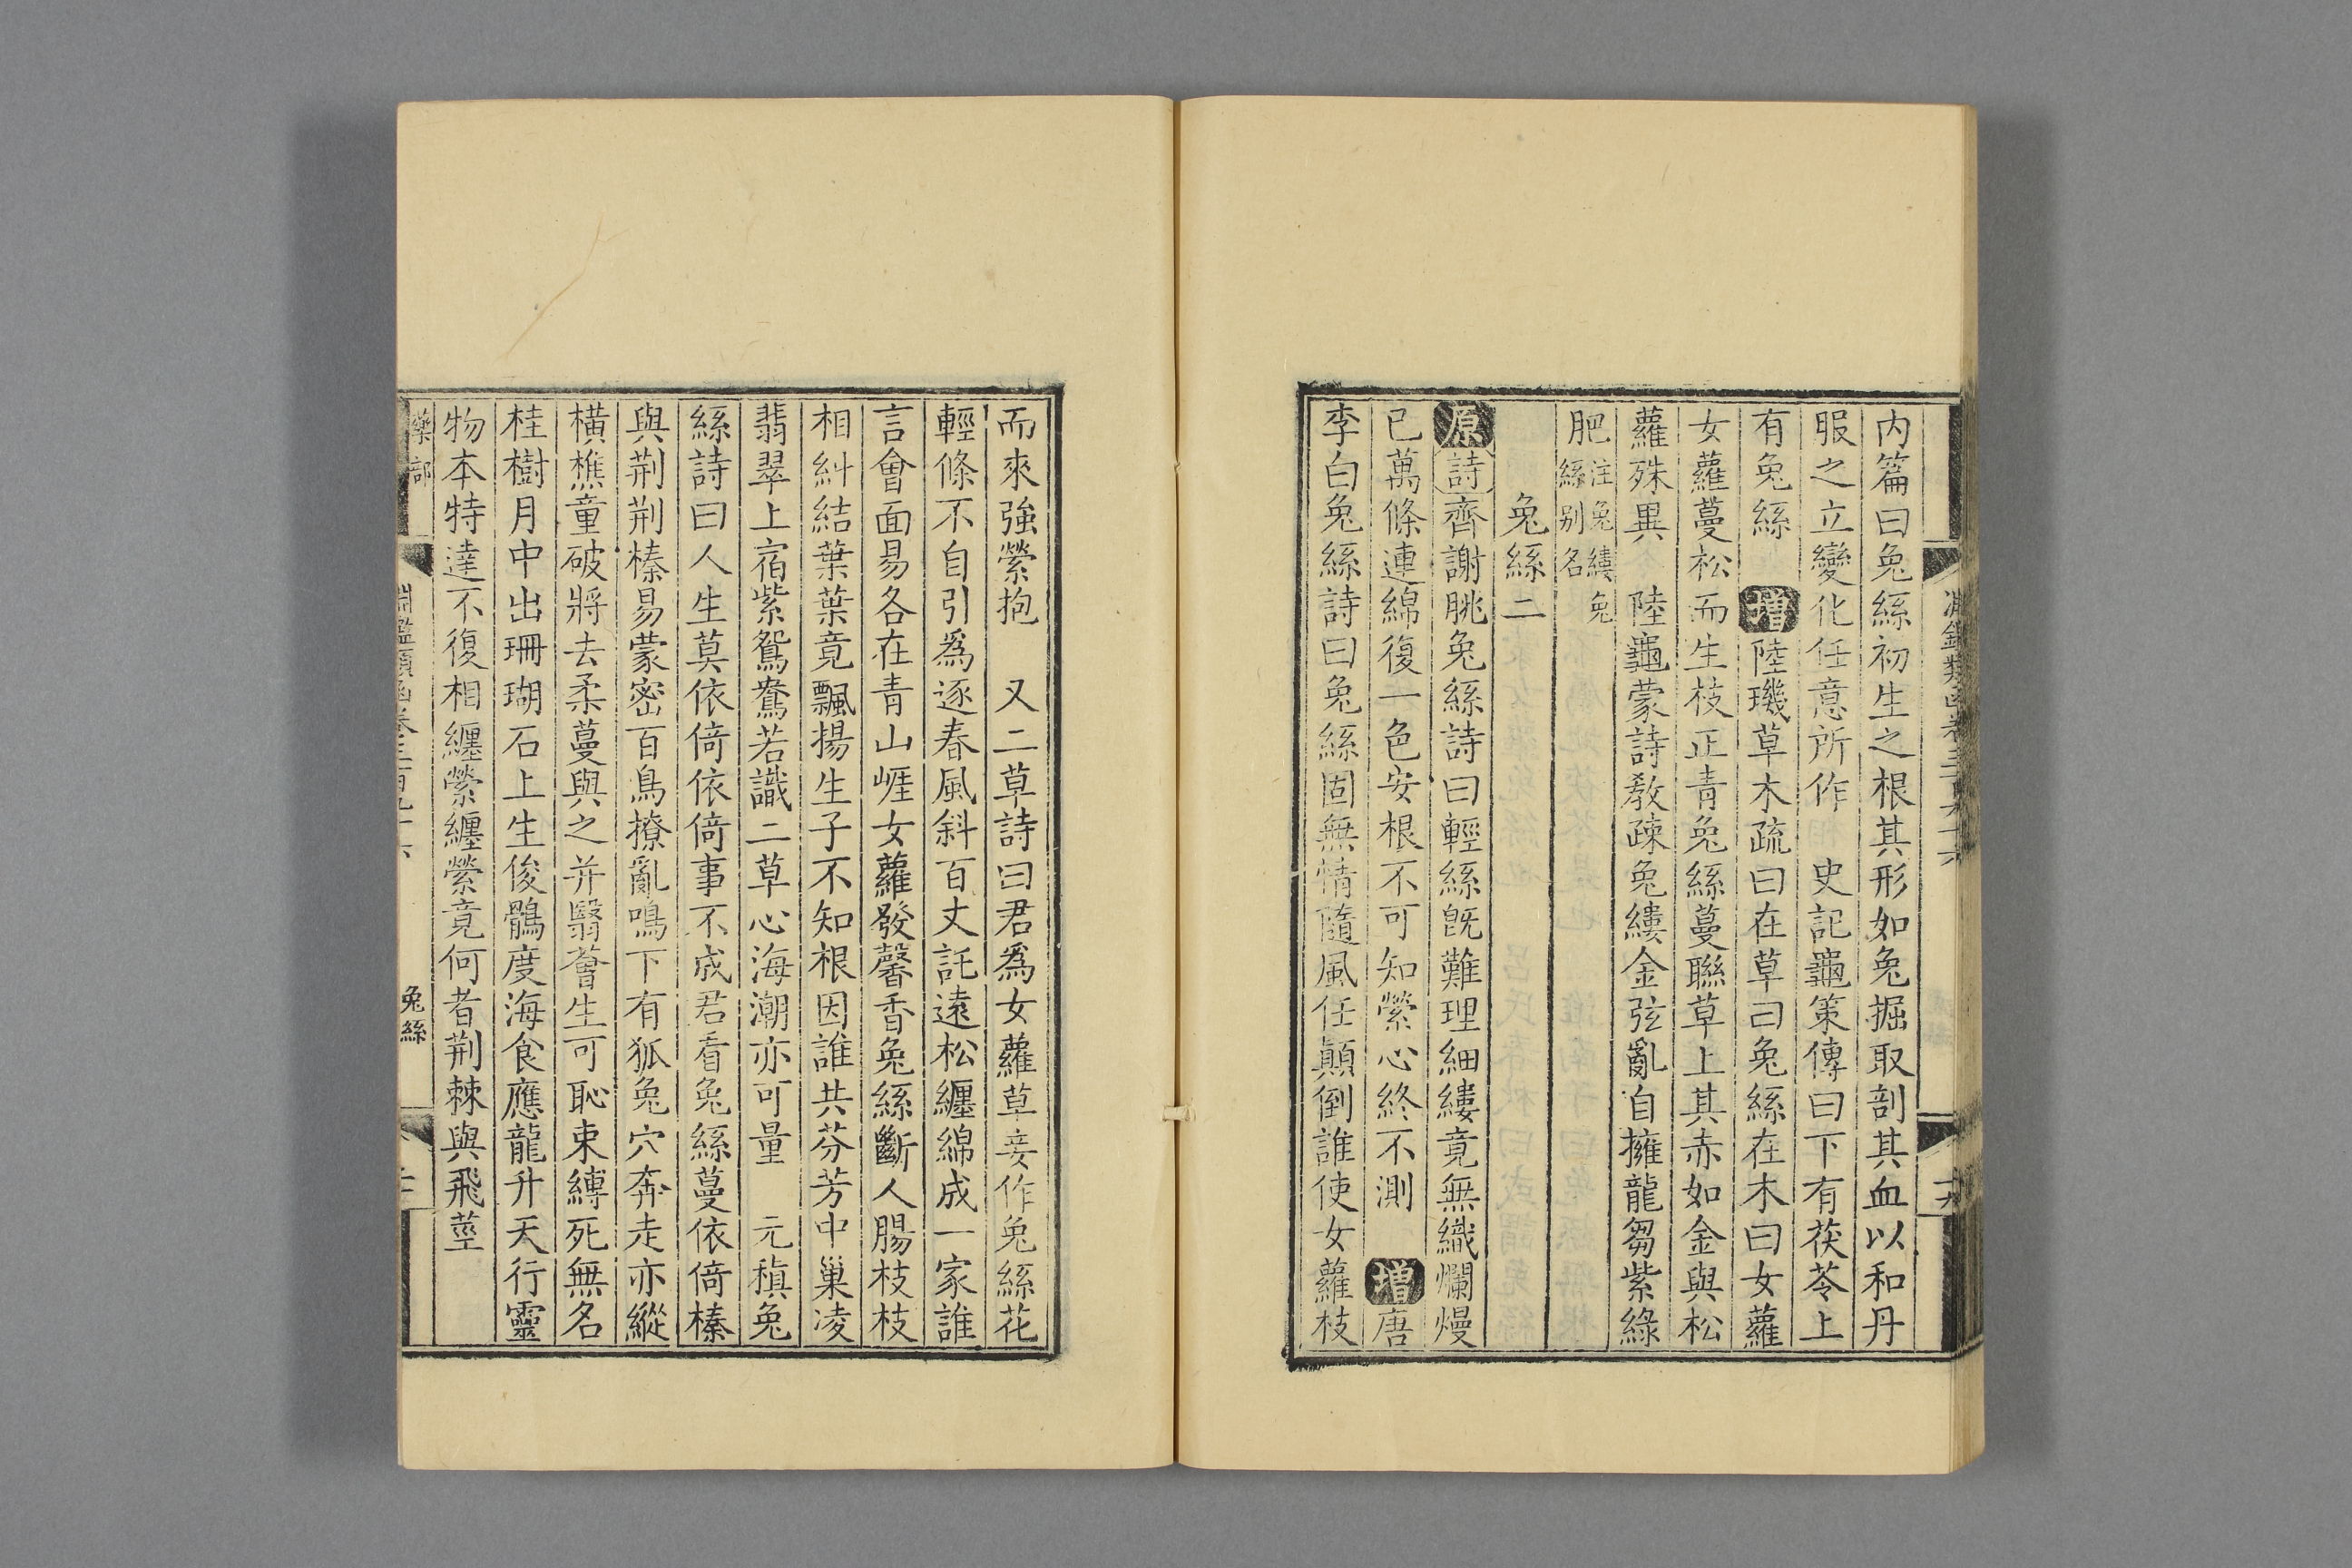 内篇曰兔絲初生之根其形如兔掘取剖其血以和丹
服之立變化任意所作　史記龜策傳曰下有茯苓上
有兔絲　增陸璣草木疏曰在草曰兔絲在木曰女蘿
女蘿蔓松而生枝正青兔絲蔓聯草上其赤如金與松
蘿殊異　陸龜蒙詩教疎兔縷金弦亂自擁龍芻紫綠
肥注兔縷兔絲別名
兔絲二
原詩齊謝朓兔絲詩曰輕絲旣難理細縷竟無織爛熳
已萬條連綿復一色安根不可知縈心終不測　增唐
李白兔絲詩曰兔絲固無情隨風任顛倒誰使女蘿枝
而來強縈抱　又二草詩曰君爲女蘿草妾作兔絲花
輕條不自引爲逐春風斜百丈託遠松纏綿成一家誰
言會面易各在青山崕女蘿發馨香兔絲斷人腸枝枝
相糾結葉葉竟飄揚生子不知根因誰共芬芳中巢凌
翡翠上宿紫鴛鴦若識二草心海潮亦可量　元稹兔
絲詩曰人生莫依倚依倚事不成君看兔絲蔓依倚榛
與荆荆榛易蒙密百鳥撩亂鳴下有狐兔穴奔走亦縱
橫樵童破將去柔蔓與之并翳薈生可恥束縛死無名
桂樹月中出珊瑚石上生俊鶻度海食應龍升天行靈
物本特達不復相纏縈纏縈竟何者荆棘與飛莖
藥部
淵鑑類函卷三百九十六
兔絲